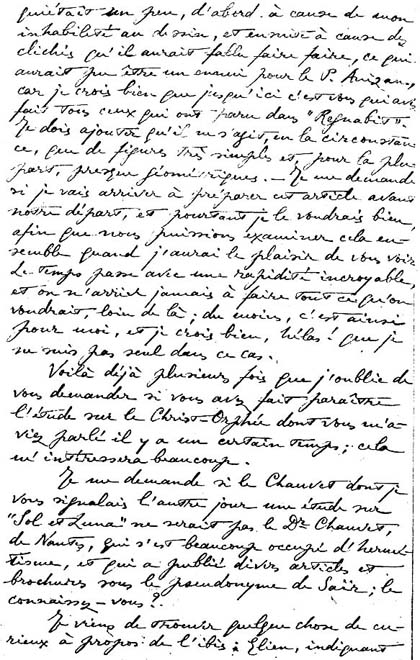 quiétait un peu, d'abord à cause de mon
inhabileté au dessin, et ensuite à cause des
clichés qu'il aurait fallu faire faire, ce qui
aurait pu être un ennui pour le P. Anizan,
car je crois bien que jusqu'ici c'est vous qui avez
fait tous ceux qui ont paru dans "Regnabit".
Je dois ajouter qu'il ne s'agit, en la circonstan-
ce, que de figures très simples et, pour la plu-
part, presque géométriques. – Je me demande
si je vais arriver à préparer cet article avant
notre départ, et pourtant je le voudrais bien,
afin que nous puissions examiner cela en-
semble quand j'aurai le plaisir de vous voir.
Le temps passe avec une rapidité incroyable,
et on n'arrive jamais à faire tout ce qu'on
voudrait, loin de là ; du moins, c'est ainsi
pour moi, et je crois bien, hélas ! que je
ne suis pas seul dans ce cas.
Voilà déjà plusieurs fois que j'oublie de
vous demander si vous avez fait paraître
l'étude sur le Christ-Orphée dont vous m'a-
viez parlé il y a un certain temps ; cela
m'intéressera beaucoup.
Je me demande si le Chauvet dont je
vous signalais l'autre jour une étude sur
"Sol et Luna" ne serait pas le Dr Chauvet,
de Nantes, qui s'est beaucoup occupé d'hermé-
tisme, et qui a publié divers articles et
brochures sous le pseudonyme de Saïr ; le
connaissez-vous ?
Je viens de trouver quelque chose de cu-
rieux à propos de l'ibis : Elien, indiquant